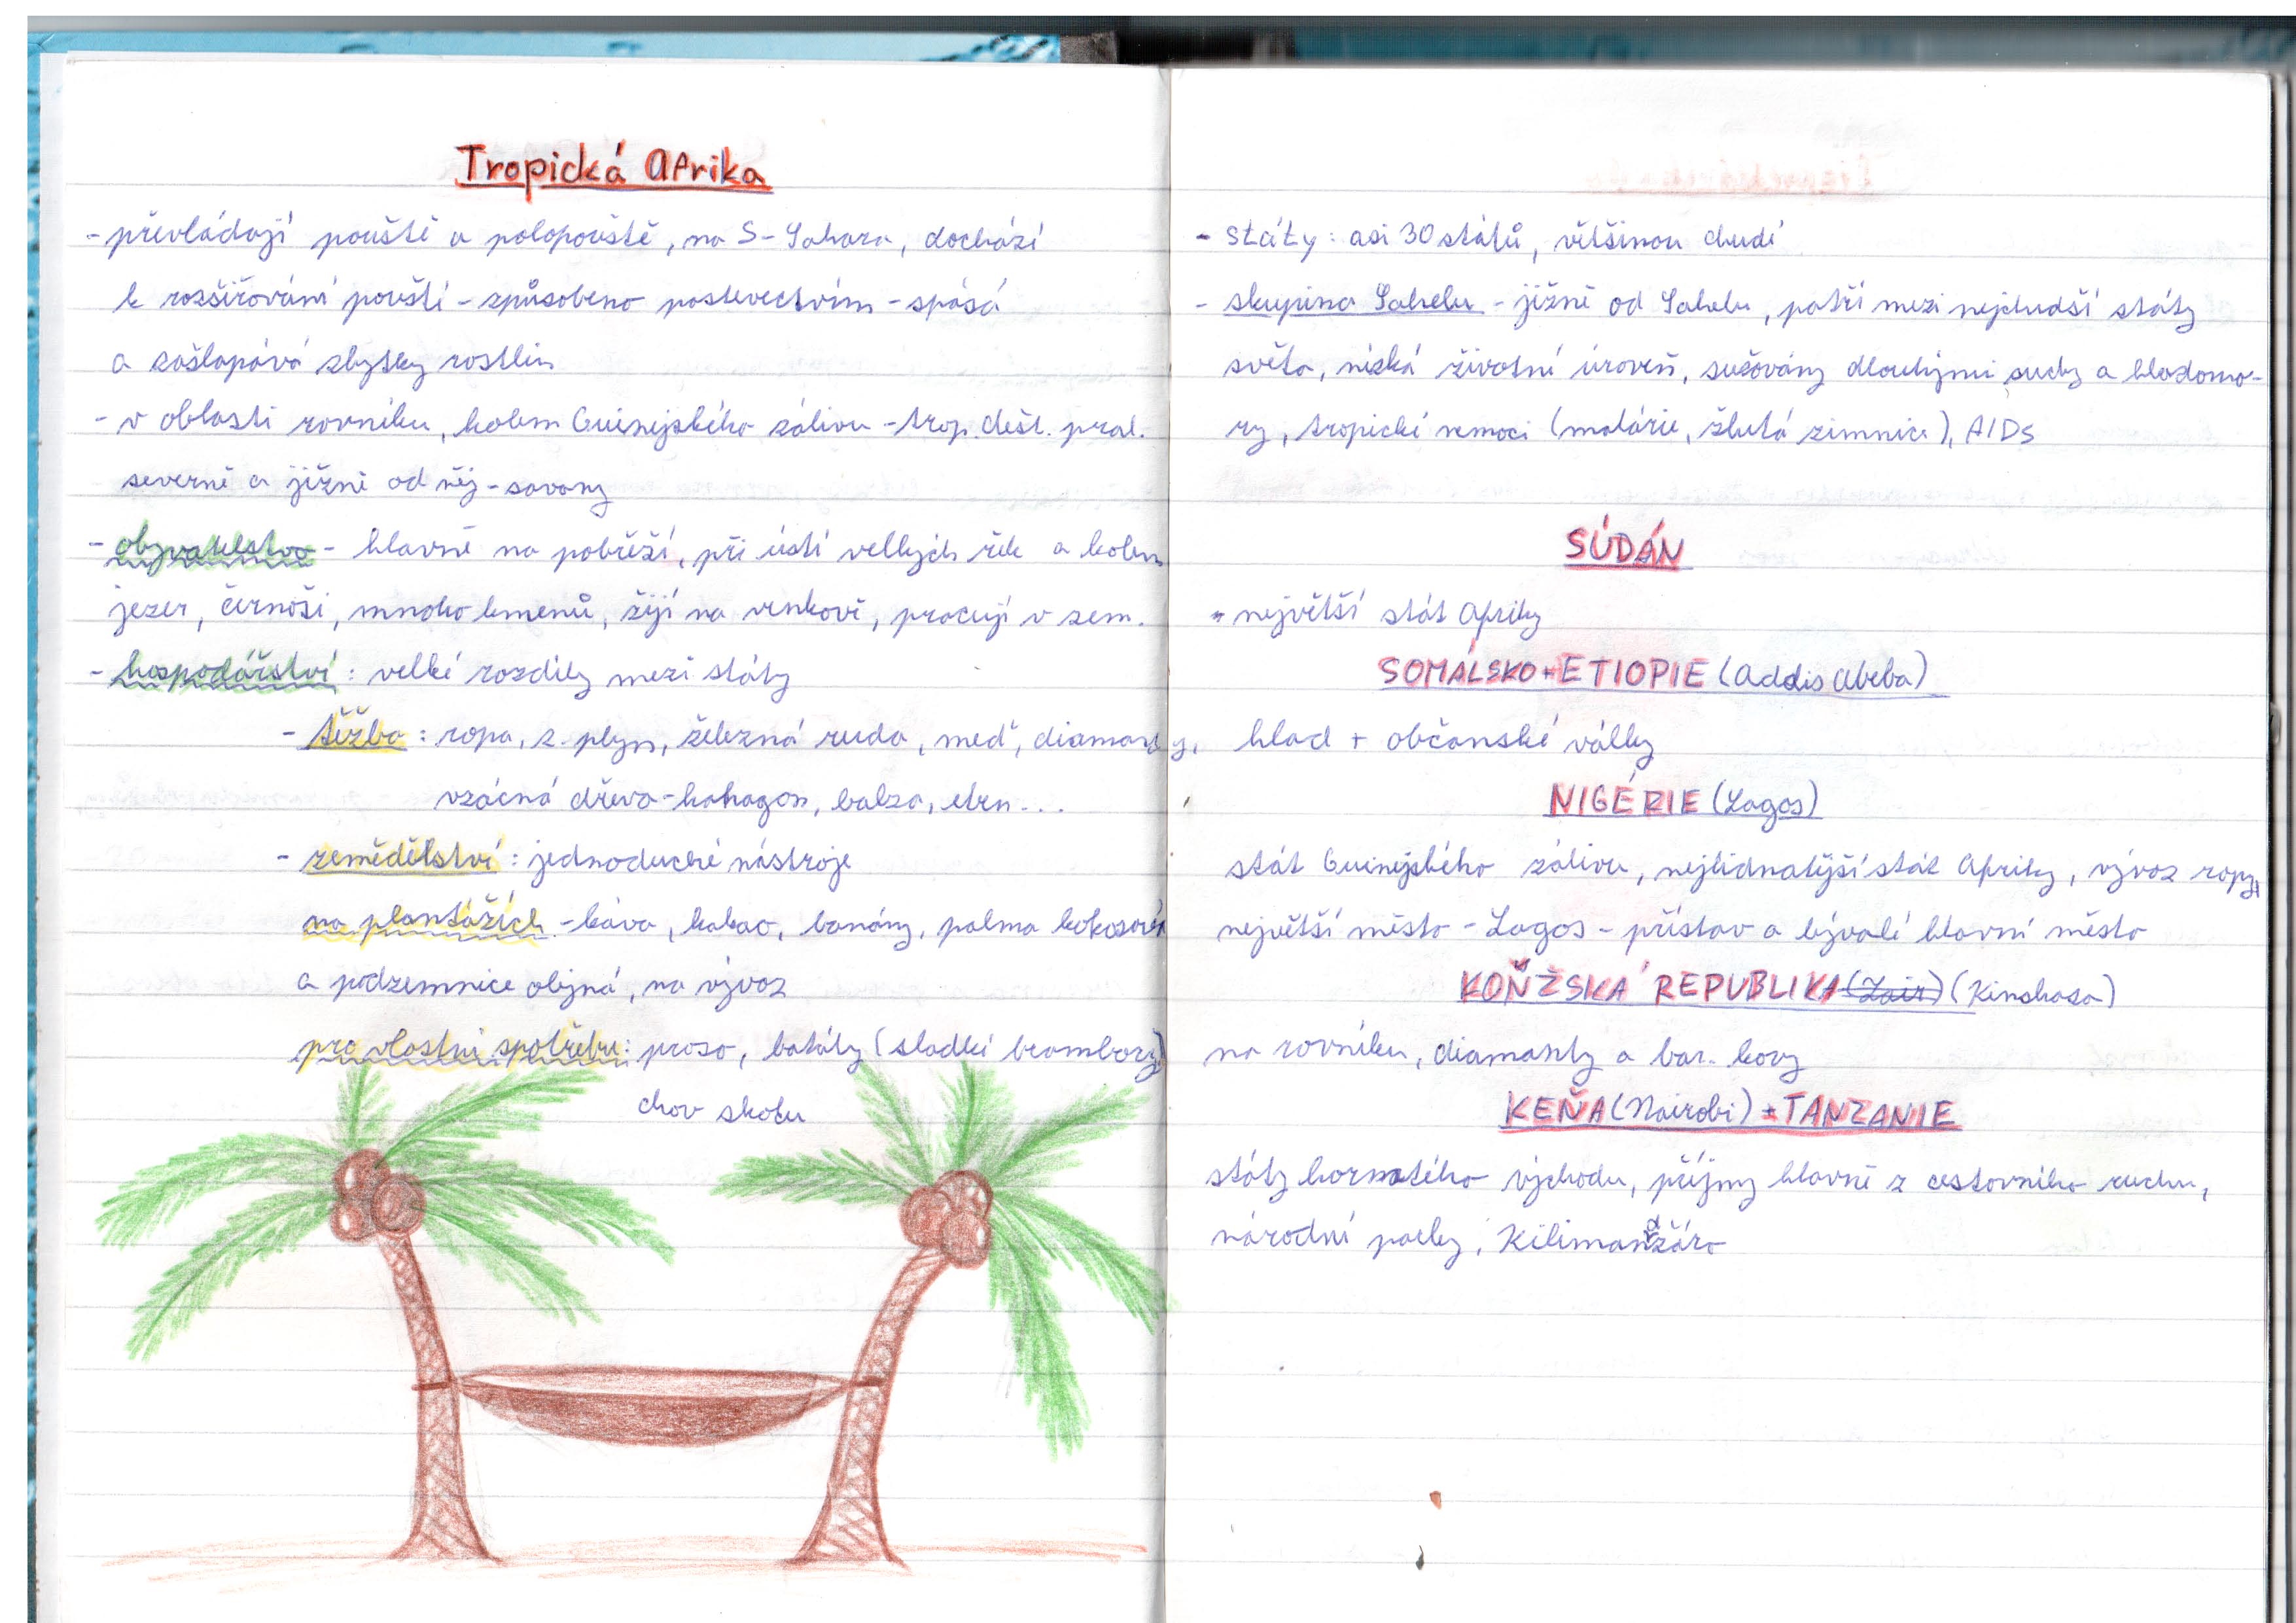 Tropická Afrika
- převládají pouště a polopouště, na S - Sahara, dochází
k rozšiřování pouští - způsobeno pastevectvím - spásá
a zašlapává zbytky rostlin
- v oblasti rovníku, kolem Guinejského zálivu - trop. dešt. pral.
severně a jižně od něj - savany
- obyvatelstvo - hlavně na pobřeží, při ústí velkých řek a kolem
jezer, černoši, mnoho kmenů, žijí na venkově, pracují v zem.
- hospodářství : velké rozdíly mezi státy
- těžba : ropa, z. plyn, železná ruda, měď, diamanty,
vzácná dřeva - hahagon, balza, eben...
- zemědělství : jednoduché nástroje
na plantážích - káva, kakao, banány, palma kokosová
a podzemnice olejná, na vývoz
pro vlastní spotřebu : proso, batáty (sladké brambory)
chov skotu
- státy : asi 30 států, většinou chudé
- skupina Sahelu - jižně od Sahelu, patří mezi nejchudší státy
světa, nízká životní úroveň, sužovány dlouhými suchy a hladomo-
ry, tropické nemoci (malárie, žlutá zimnice), AIDS
SÚDÁN
- největší stát Afriky
SOMÁLSKO + ETIOPIE (Addis Abeba)
hlad + občanské války
NIGÉRIE (Lagos)
stát Guinejského zálivu, nejlidnatější stát Afriky, vývoz ropy,
největší město - Lagos - přístav a bývalé hlavní město
KOŇŽSKÁ REPUBLIKA (Zair) (Kinshasa)
na rovníku, diamanty a bar. kovy
KEŇA (Nairobi) + TANZANIE
státy hornatého východu, příjmy hlavně z cestovního ruchu,
národní parky, Kilimandžáro